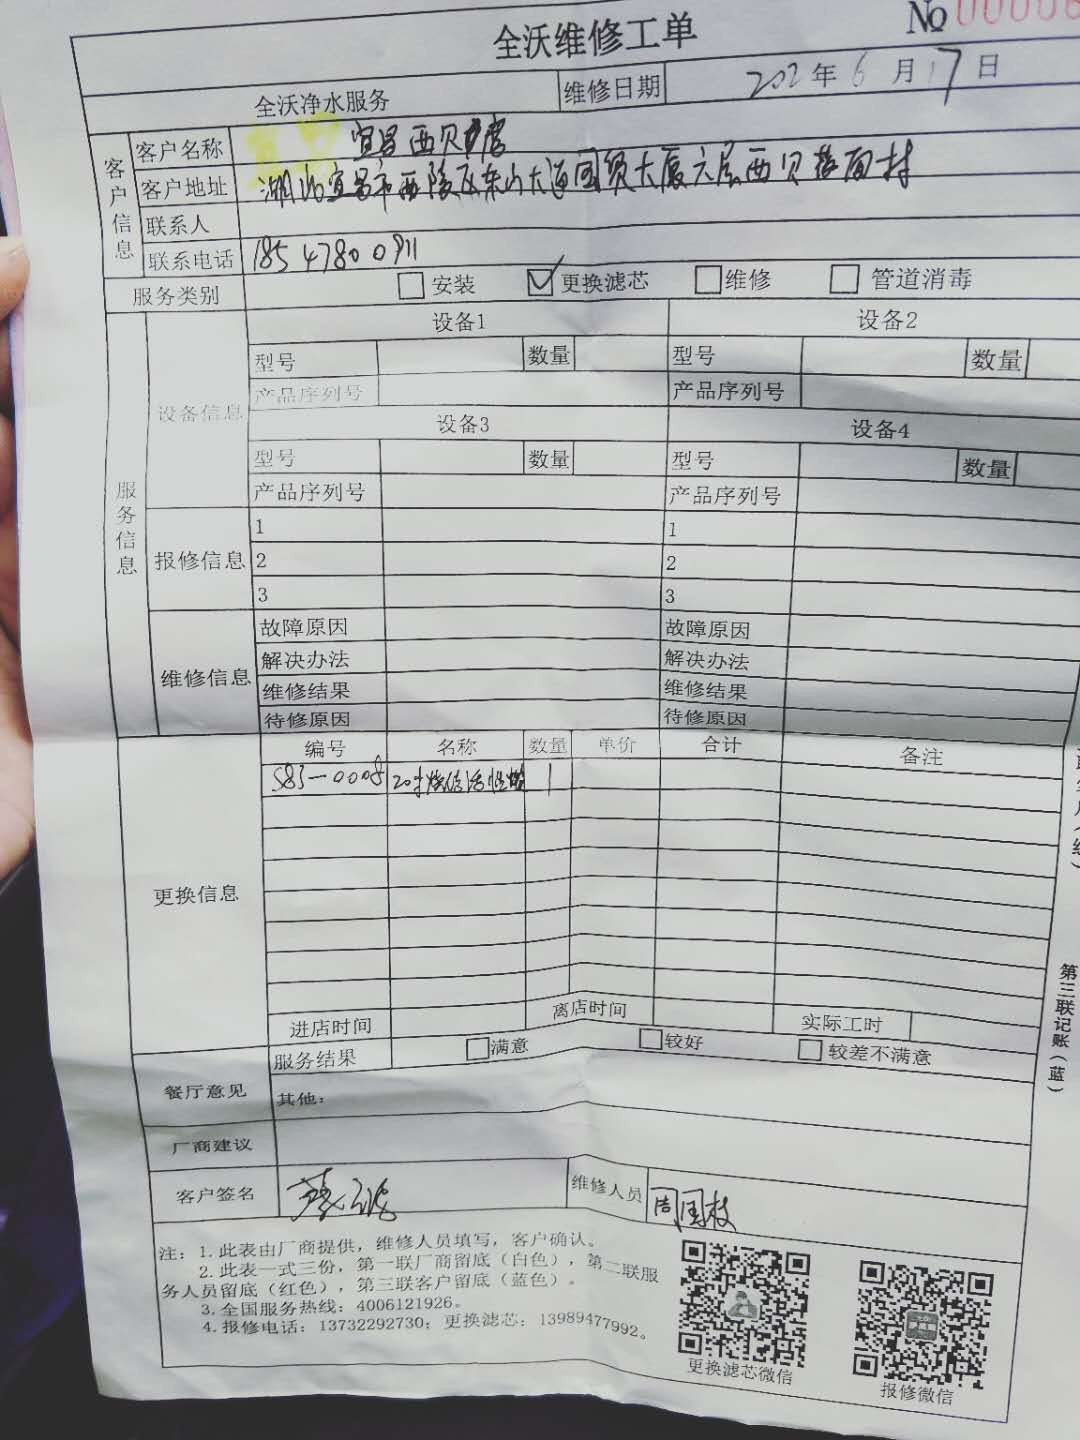 全沃维修工单
№ 00006
全沃净水服务 维修日期 202 年 6 月 17 日
客户信息
客户名称 宜昌西贝
客户地址 湖北宜昌市西陵区东山大道国贸大厦六层西贝莜面村
联系人
联系电话 185 4780 0911
服务类别 安装 更换滤芯 维修 管道消毒
服务信息
设备信息
设备1 设备2
型号 数量 型号 数量
产品序列号 产品序列号
设备3 设备4
型号 数量 型号 数量
产品序列号 产品序列号
报修信息
1 1
2 2
3 3
维修信息
故障原因 故障原因
解决办法 解决办法
维修结果 维修结果
待修原因 待修原因
更换信息
编号 名称 数量 单价 合计 备注
S83-0008 20寸烧结活性炭 1
进店时间 离店时间 实际工时
餐厅意见
服务结果 满意 较好 较差不满意
其他：
厂商建议
客户签名 维修人员 周国枝
注：1.此表由厂商提供，维修人员填写，客户确认。
2.此表一式三份，第一联厂商留底（白色），第二联服
务人员留底（红色），第三联客户留底（蓝色）。
3.全国服务热线：4006121926。
4.报修电话：13732292730；更换滤芯：13989477992。
更换滤芯微信
报修微信
第三联记账（蓝）